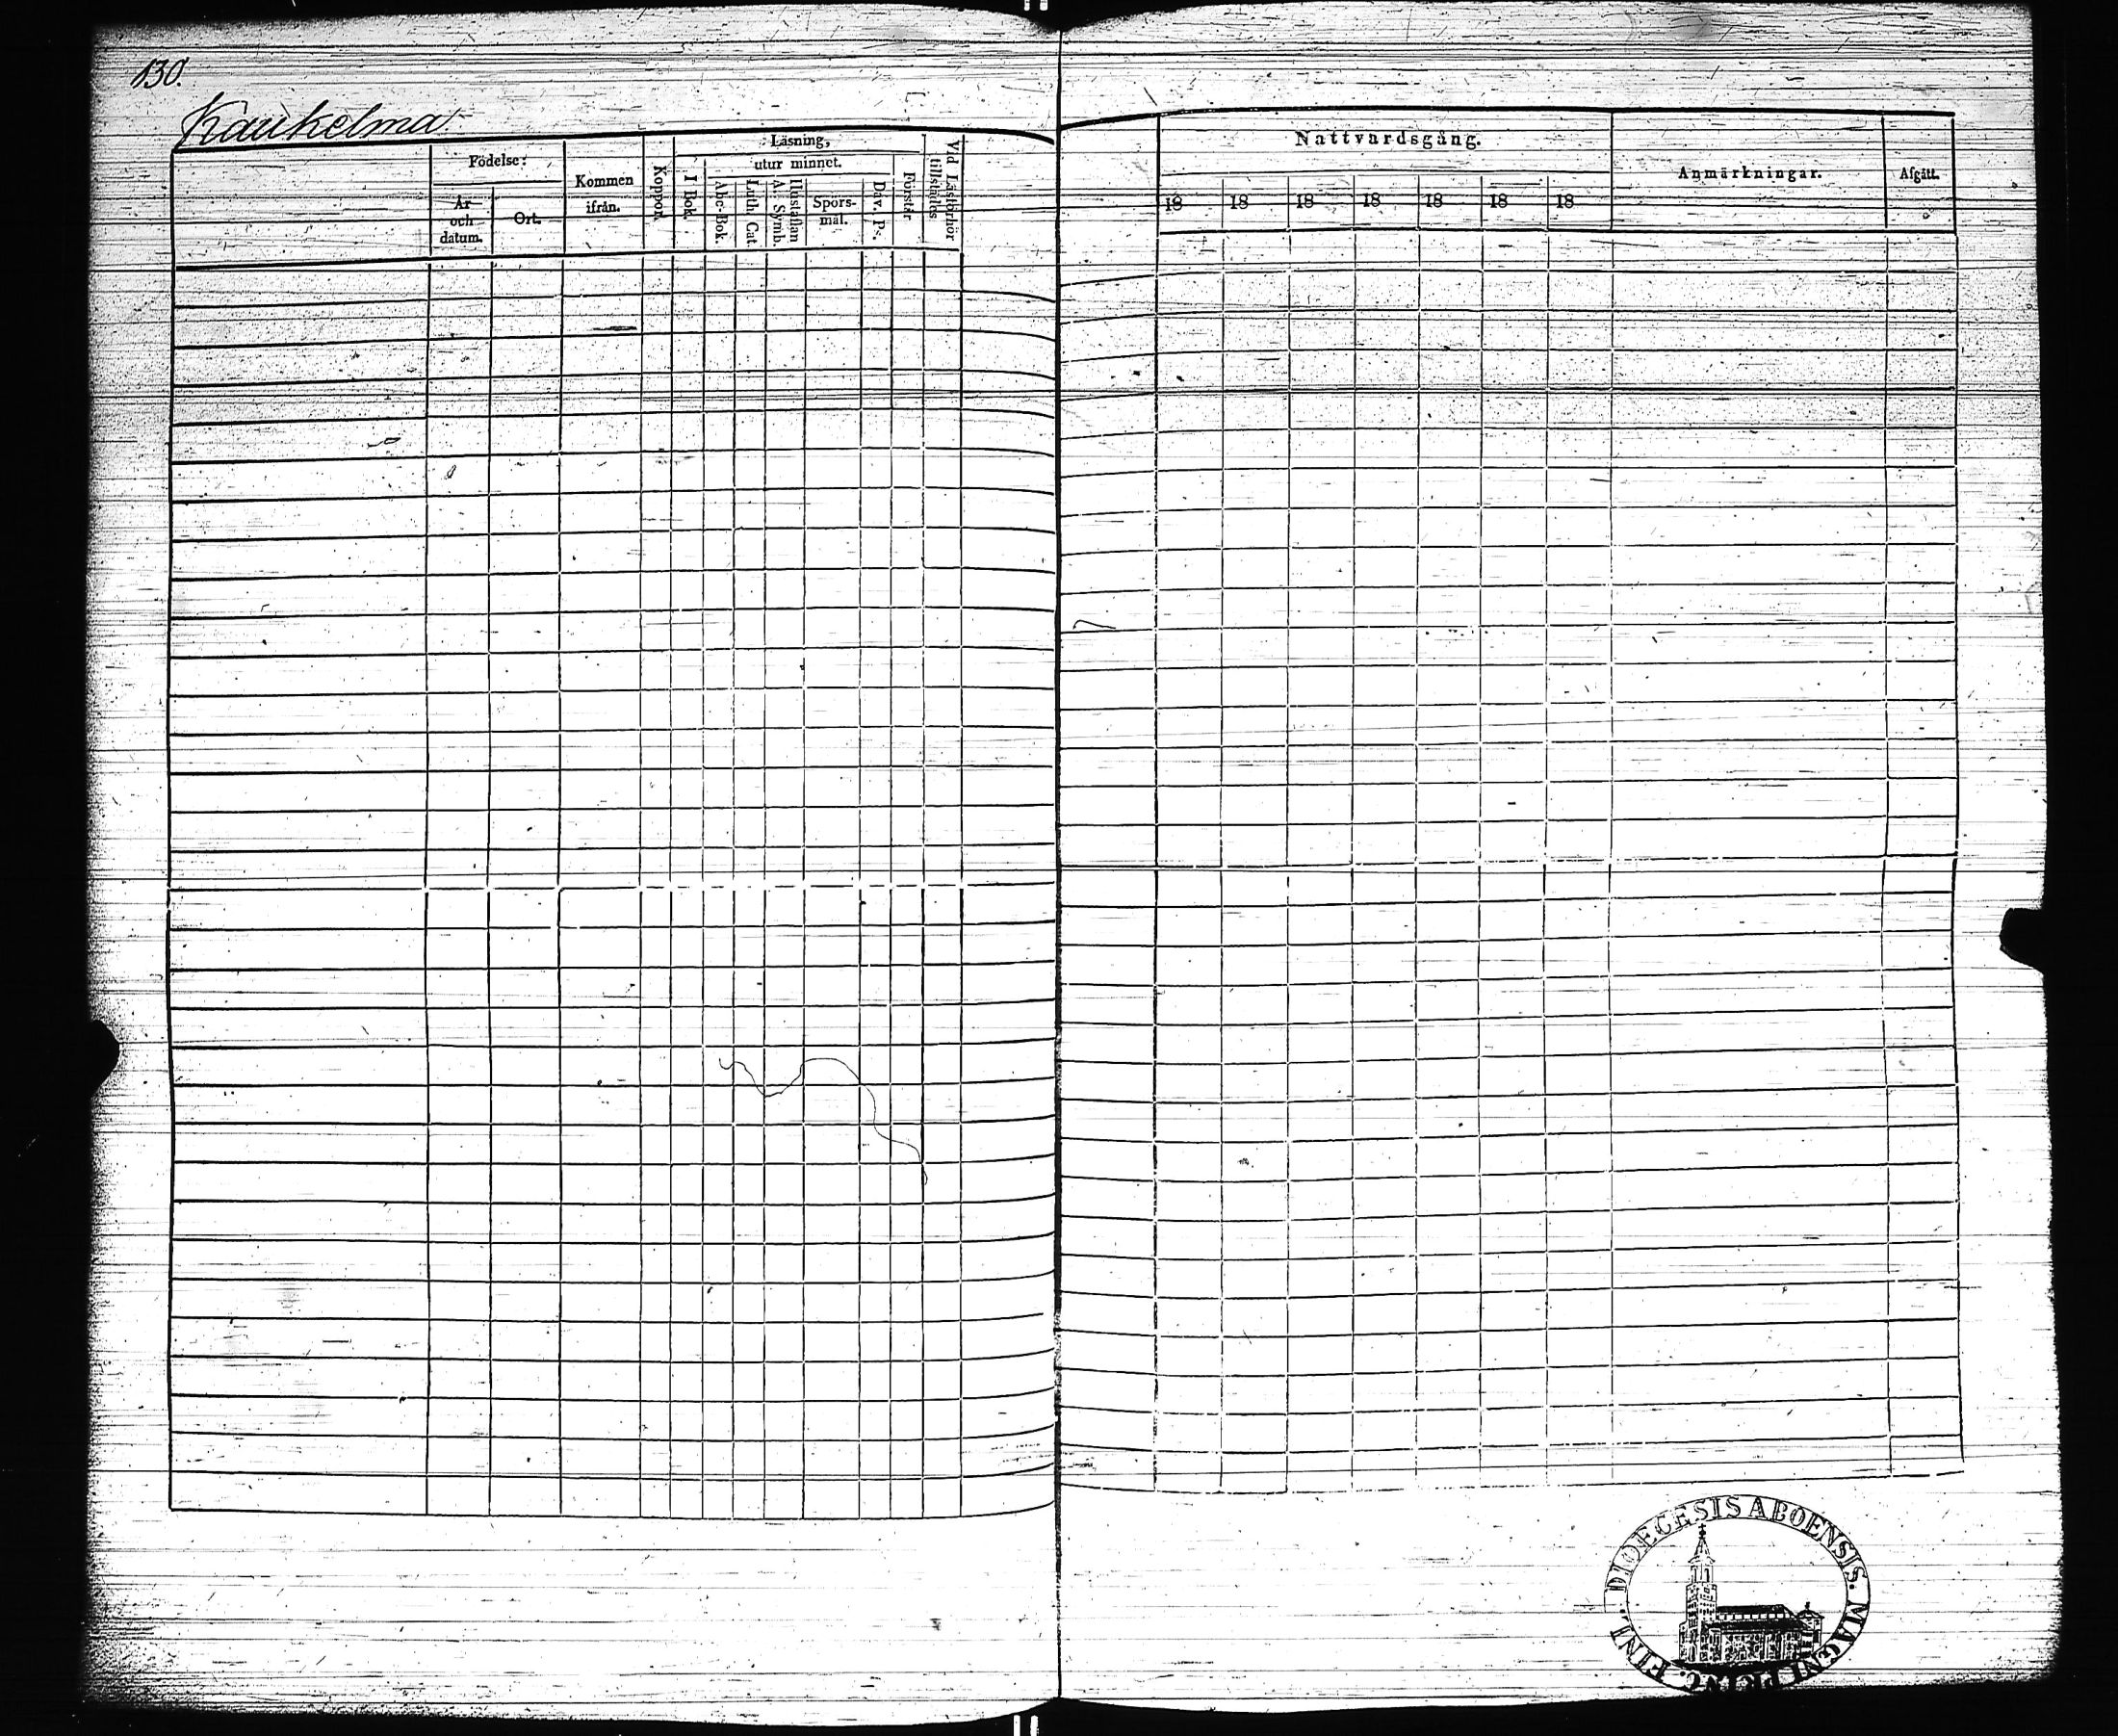 130.
Kaukelma
Födelse:
År
och
datum.
Ort.
Kommen
ifrån.
Koppor.
Läsning,
utur minnet.
I Bok.
Abc-Bok.
Luth. Cat.
Hustaflan
A. Symb.
Spörs-
mål.
Dav. Ps.
Förstår
Vid Läsförhör
tillstädes
Nattvardsgång.
18 18 18 18 18 18 18
Anmärkningar.
Afgått.
DIOECESIS ABOENSIS. MAGNI PRINC. FINL.